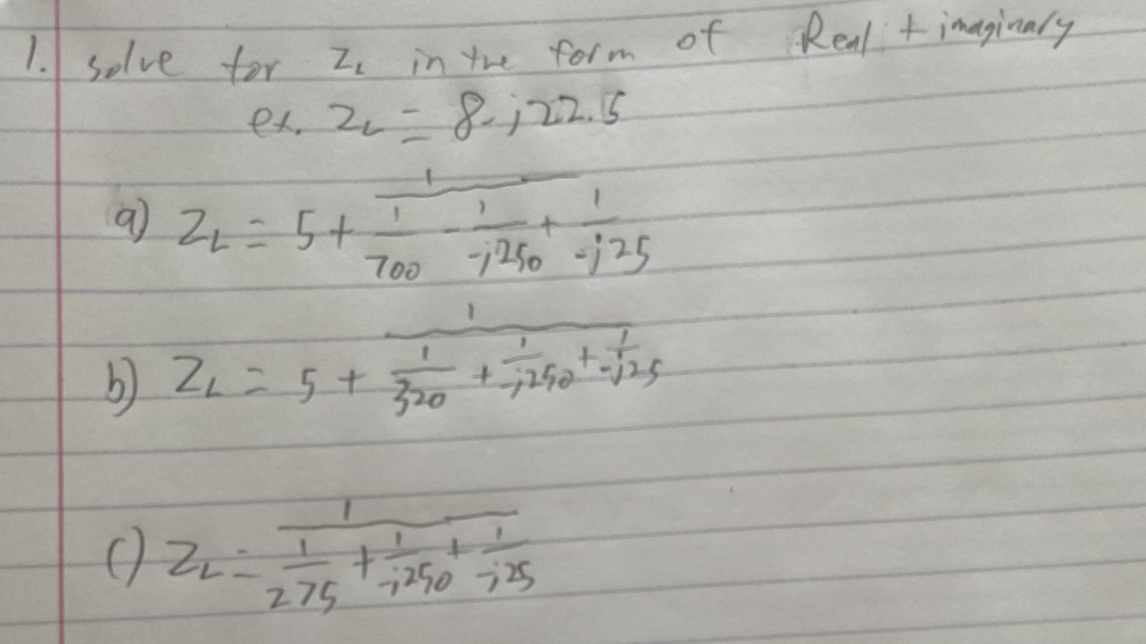 1. solve for Z_L in the form of Real + imaginary
ex. Z_L = 8-j22.5
a) Z_L = 5 + 1/(1/700 - 1/-j250 + 1/-j25)
b) Z_L = 5 + 1/(1/320 + 1/-j250 + 1/-j25)
c) Z_L = 1/(1/275 + 1/-j250 + 1/-j25)